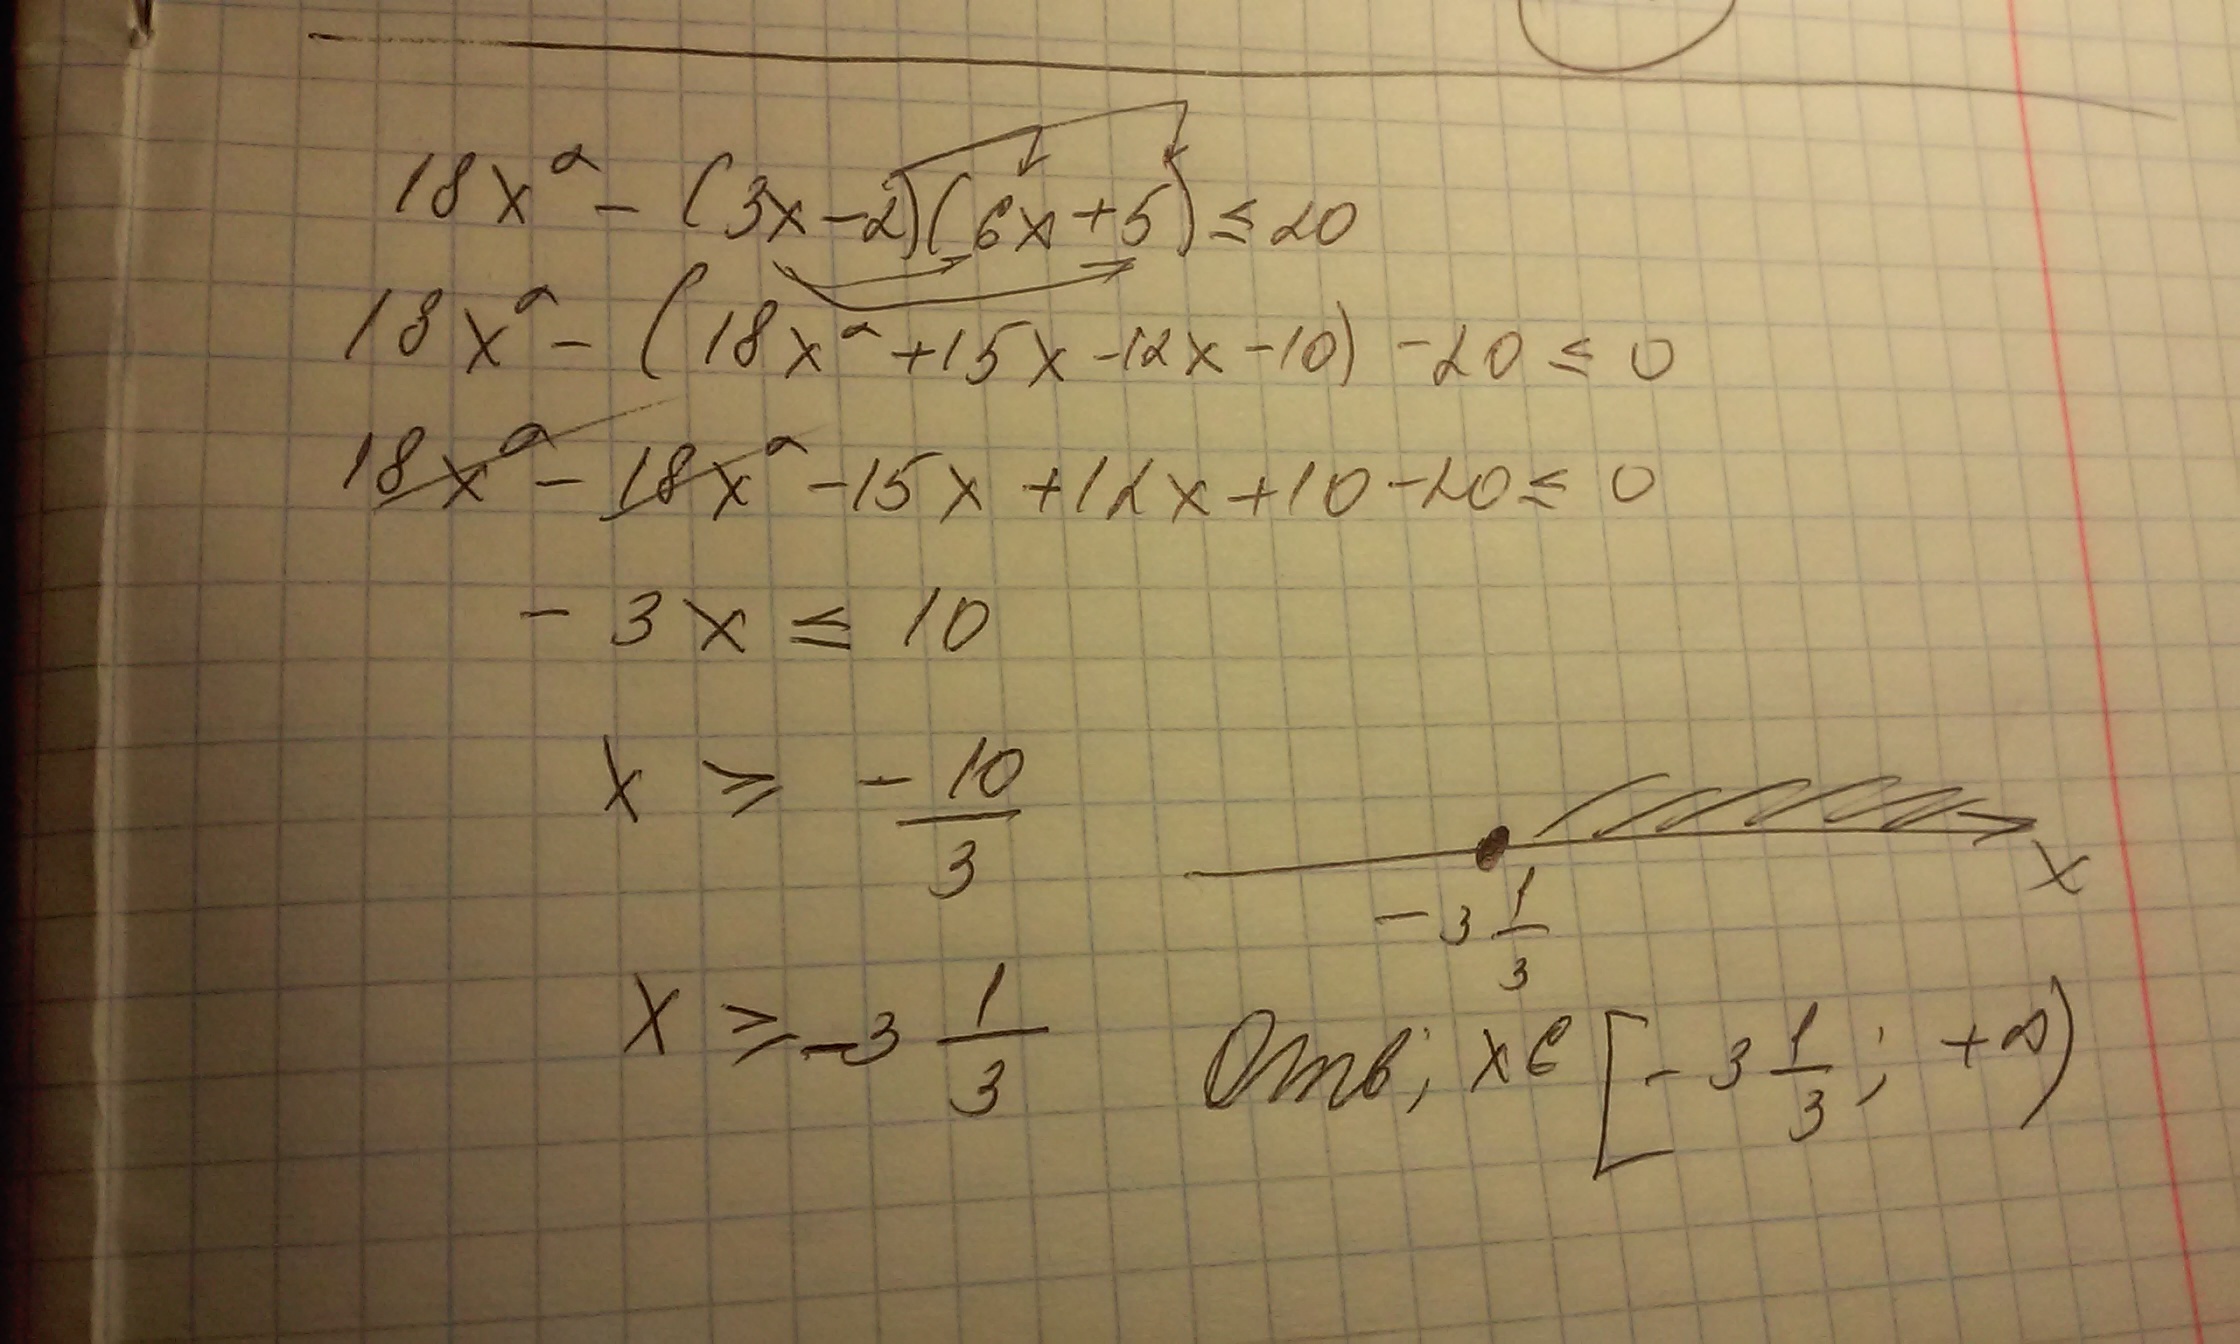 18x² - (3x-2)(6x+5) ≤ 20
18x² - (18x² +15x -12x -10) -20 ≤ 0
18x² - 18x² -15x +12x +10 -20 ≤ 0
-3x ≤ 10
x ≥ -10/3
-3 1/3 x
x ≥ -3 1/3
Отв; x∈[-3 1/3; +∞)